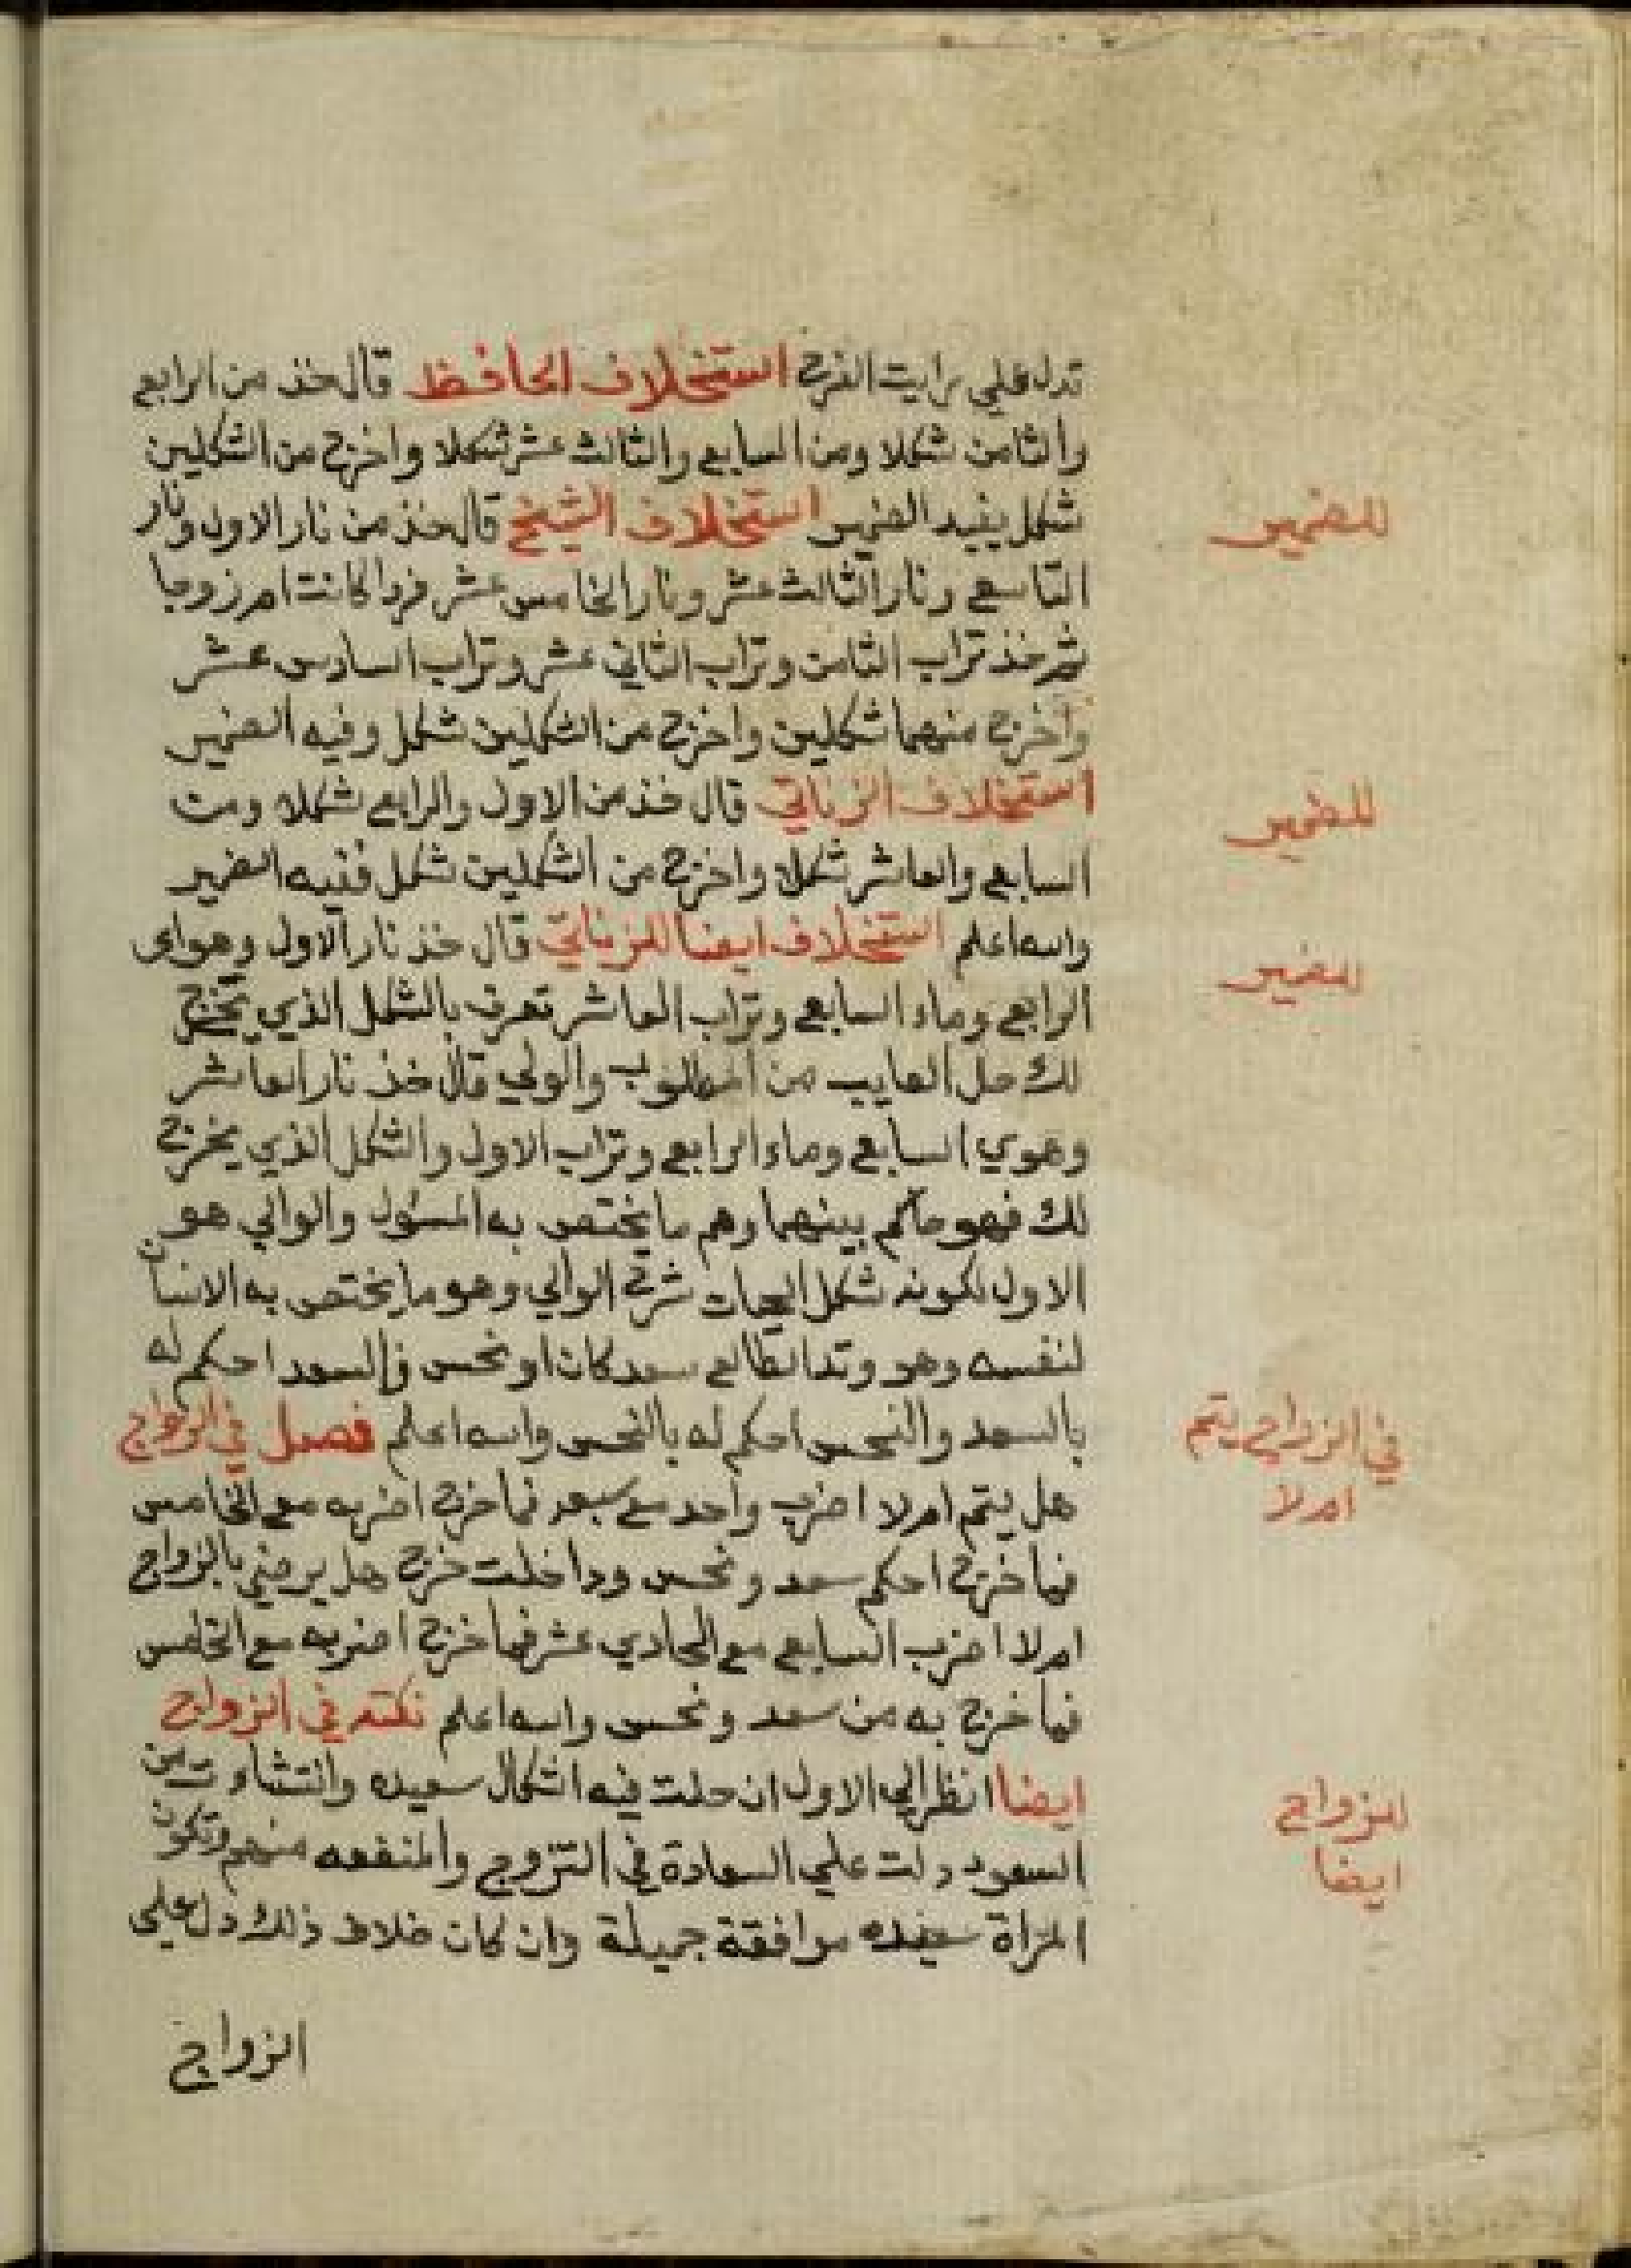 تدل علي رايت الفرح استخلاف الحافظ قال خذ من الرابع
والثامن شكلا ومن السابع والثالث عشر شكلا واخرج من الشكلين
شكل يفيد الضمير استخلاف الشيخ قال خذ من نار الاول ونار
للضمير
التاسع ونار الثالث عشر ونار الخامس عشر فردا كانت ام زوجا
ثم خذ تراب الثامن وتراب الثاني عشر وتراب السادس عشر
واخرج منهما شكلين واخرج من الشكلين شكل وفيه الضمير
استخلاف الزناتي قال خذ من الاول والرابع شكلا ومن
للضمير
السابع والعاشر شكلا واخرج من الشكلين شكل ففيه الضمير
والله اعلم استخلاف ايضا للزناتي قال خذ نار الاول وهواى
للضمير
الرابع وماء السابع وتراب العاشر تعرف بالشكل الذي يخرج
لك حل الغايب من المطلوب والولي قال خذ نار العاشر
وهوي السابع وماء الرابع وتراب الاول والشكل الذي يخرج
لك فهو حاكم بينهما وهم ما يختص به المسؤل والوالي هو
الاول لكونه شكل الحيات شرح الوالي وهو ما يختص به الانسان
لنفسه وهو وتد الطالع سعد كان او نحس فالسعد احكم له
بالسعد والنحس احكم له بالنحس والله اعلم فصل في الزواج
في الزواج يتم
ام لا
هل يتم ام لا اضرب واحد مع سبعه فما خرج اضربه مع الخامس
فما خرج احكم سعد ونحس وداخلت خرج هل يرضي بالزواج
ام لا اضرب السابع مع الحادي عشر فما خرج اضربه مع الخامس
فما خرج به من سعد ونحس والله اعلم نكته في الزواج
ايضا انظر الي الاول ان حلت فيه اشكال سعيده وانتشاءت من
الزواج
ايضا
السعود دلت علي السعادة في التزوج والمنفعه منهم وتكون
المراة سعيده موافقة جميلة وان كان خلاف ذلك دل علي
الزواج